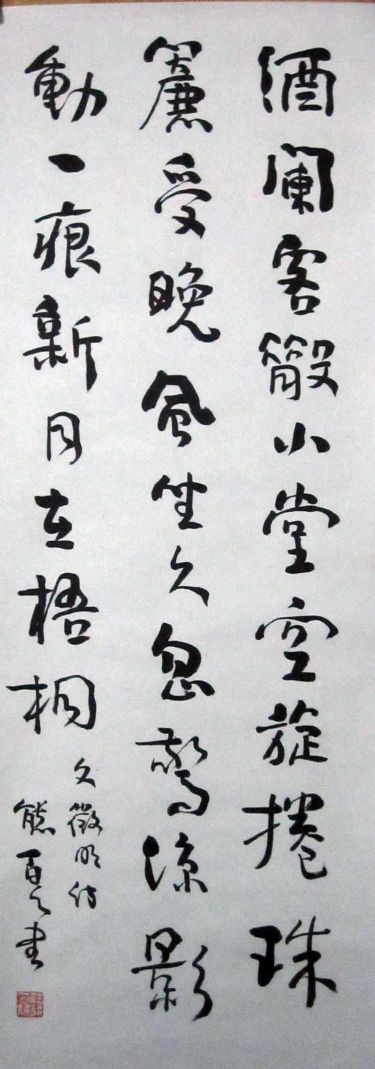 酒闌客散小堂空旋捲珠
簾受晚風坐久忽驚凉影
動一痕新月在梧桐
文徵明诗
熊百之书